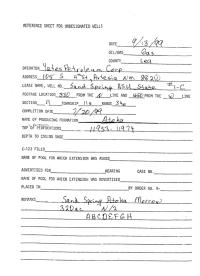 REFERENCE SHEET FOR UNDESIGNATED WELLS
DATE 9/13/99
OIL/GAS Gas
COUNTY Lea
OPERATOR Yates Petroleum Corp
ADDRESS 105 S 4th St, Artesia NM 88210
LEASE NAME, WELL NO. Sand Spring State #1-C
FOOTAGE LOCATION, 330 FROM LINE AND FROM THE LINE
SECTION TOWNSHIP 11s RANGE 34e
COMPLETION DATE 7/20/99
NAME OF PRODUCING FORMATION Atoka
TOP OF PERFORATIONS 11953-11974
DEPTH TO CASING SHOE
C-123 FILED
NAME OF POOL FOR WHICH EXTENSION WAS ASKED
ADVERTISED FOR HEARING CASE NO.
NAME OF POOL FOR WHICH EXTENSION WAS ADVERTISED
PLACED IN BY ORDER NO. R-
REMARKS Sand Spring Atoka Morrow
320ac N/2
ABCDEFGH